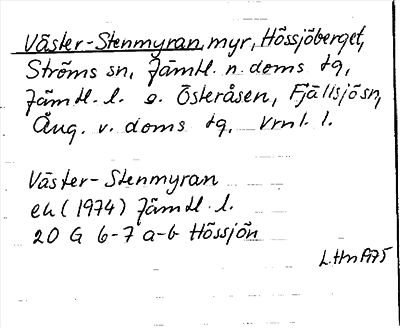 Väster-Stenmyran, myr, Hössjöberget,
Ströms sn, Jämtl. n. doms tg,
Jämtl. l. o. Österåsen, Fjällsjö sn,
Ång. v. doms tg, Vrnl. l.
Väster-Stenmyran
ek (1974) Jämtl. l.
20 G 6-7 a-b Hössjön
L.Hm 1975